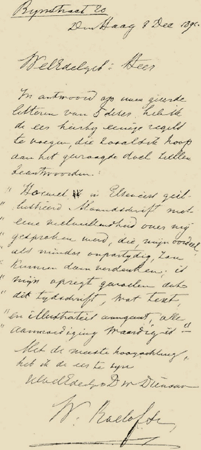 Bijnstraat 20
Den Haag 8 Dec 189
WelEdelgeb: Heer
In antwoord op uwe geëerde
letteren van 5 dezer, heb ik
de eer hierbij eenige regels
te voegen, die zooals ik hoop
aan het gevraagde doel zullen
beantwoorden.
"Hoewel in Elsevier's geïl-
lustreerd Maandschrift met
eene welwillendheid over mij
gesproken werd, die mijn oordeel
als minder onpartijdig zou
kunnen doen verdenken, is
mijn opregt gevoelen dat
dit tijdschrift, wat text
en illustratie aangaat, alle
aanmoediging waardig is"
Met de meeste hoogachting
heb ik de eer te zijn
UwelEdelgeb Dw Dienaar
W. Roelofs